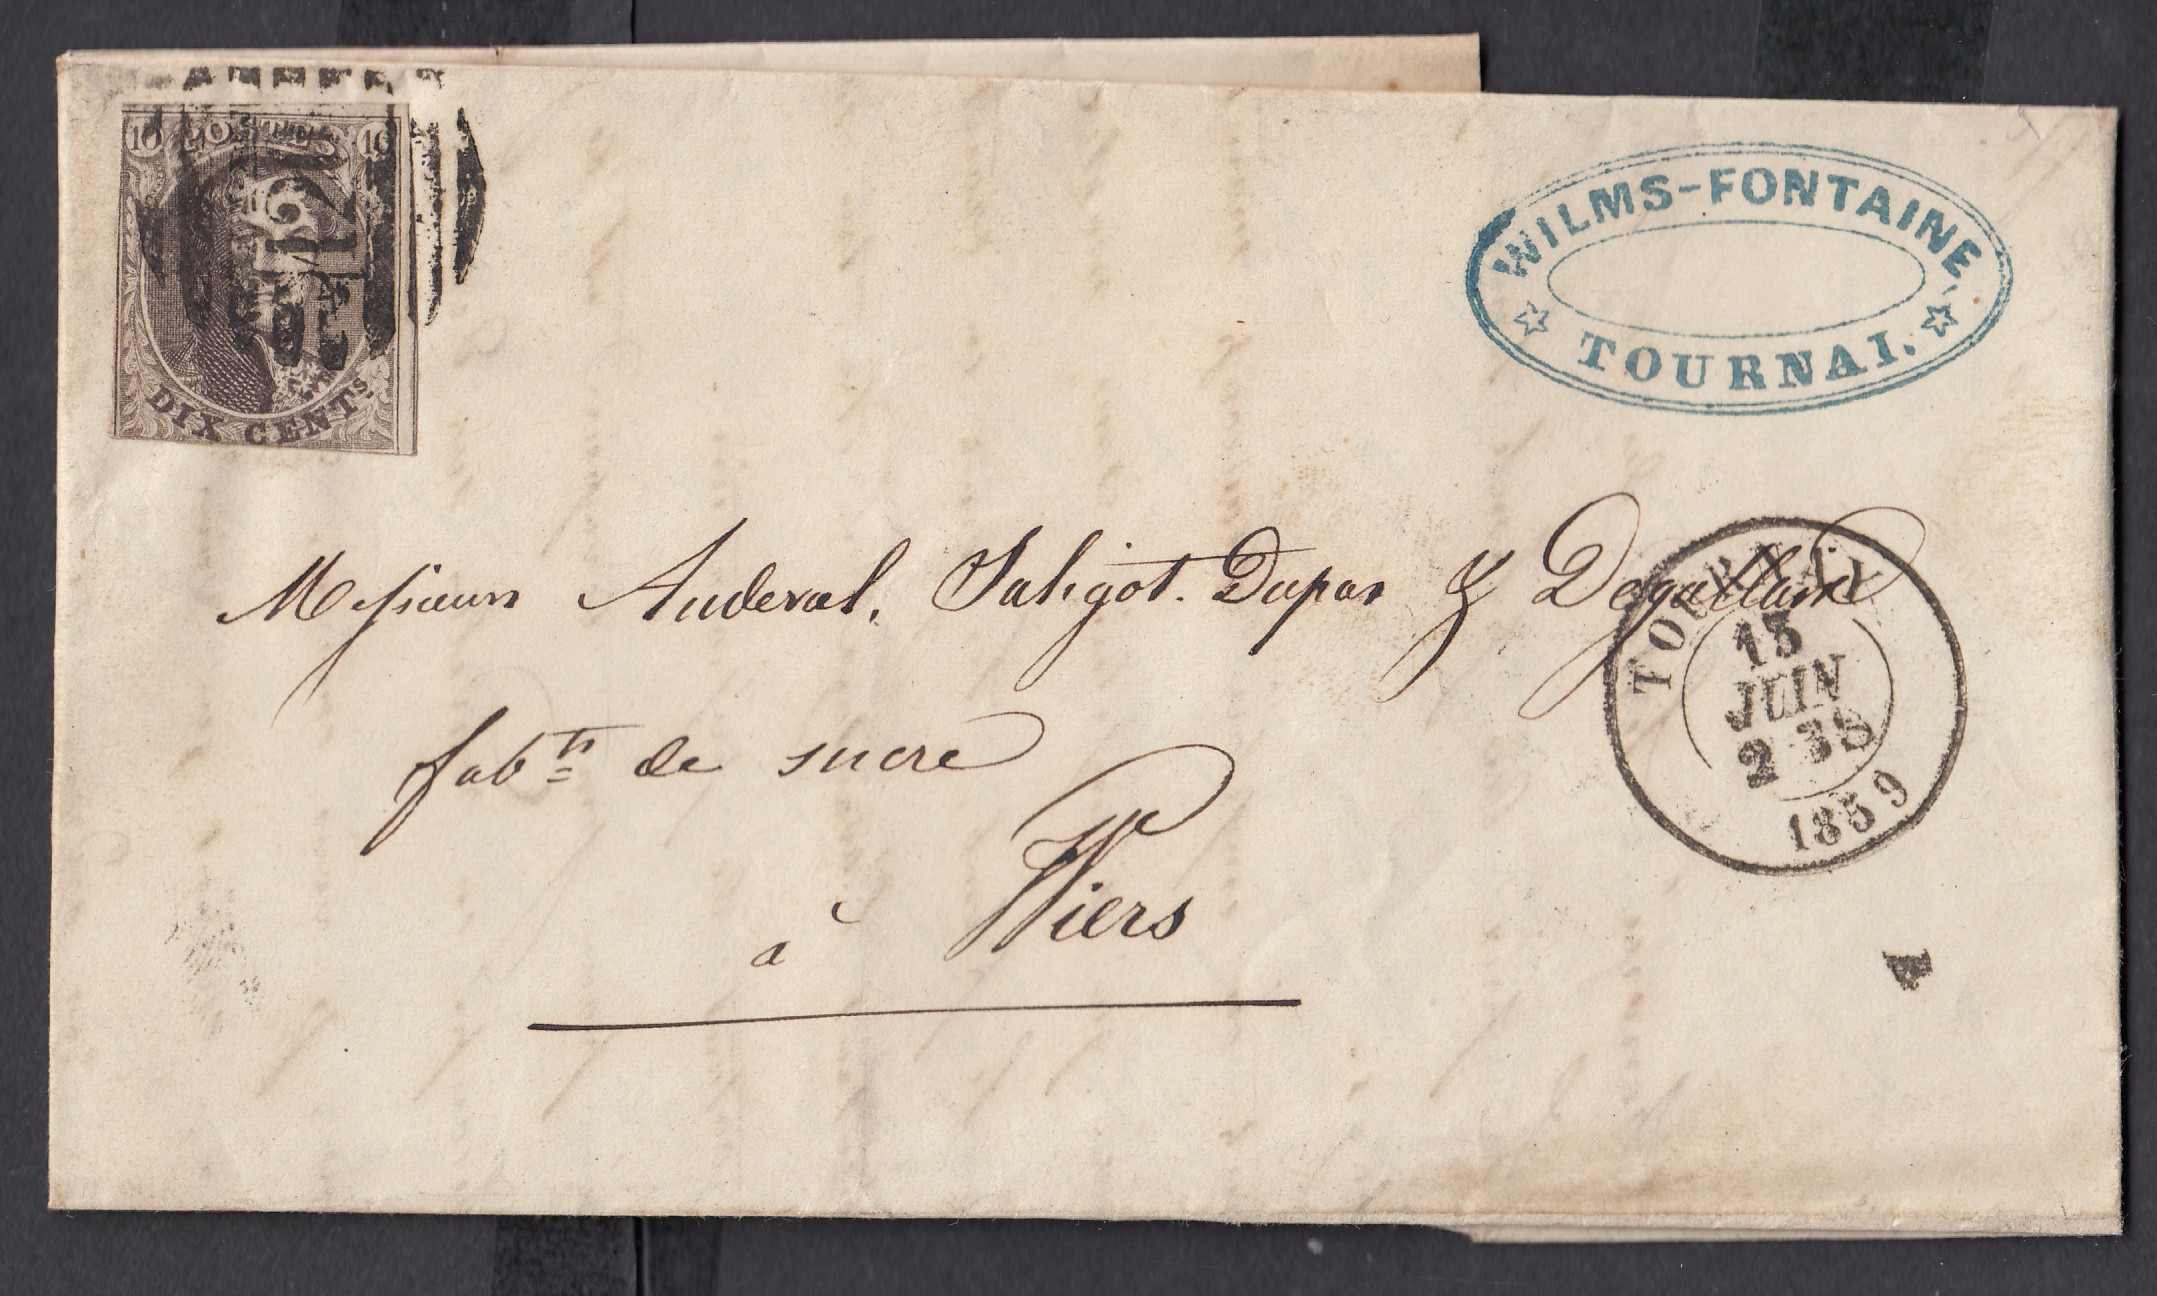 10 POSTES 10
DIX CENTS
WILMS-FONTAINE
TOURNAI.
Messieurs Auderal, Saligot. Dupas & Degallaix
fabts de sucre
à Wiers
TOURNAY
13
JUIN
2-3S
1859